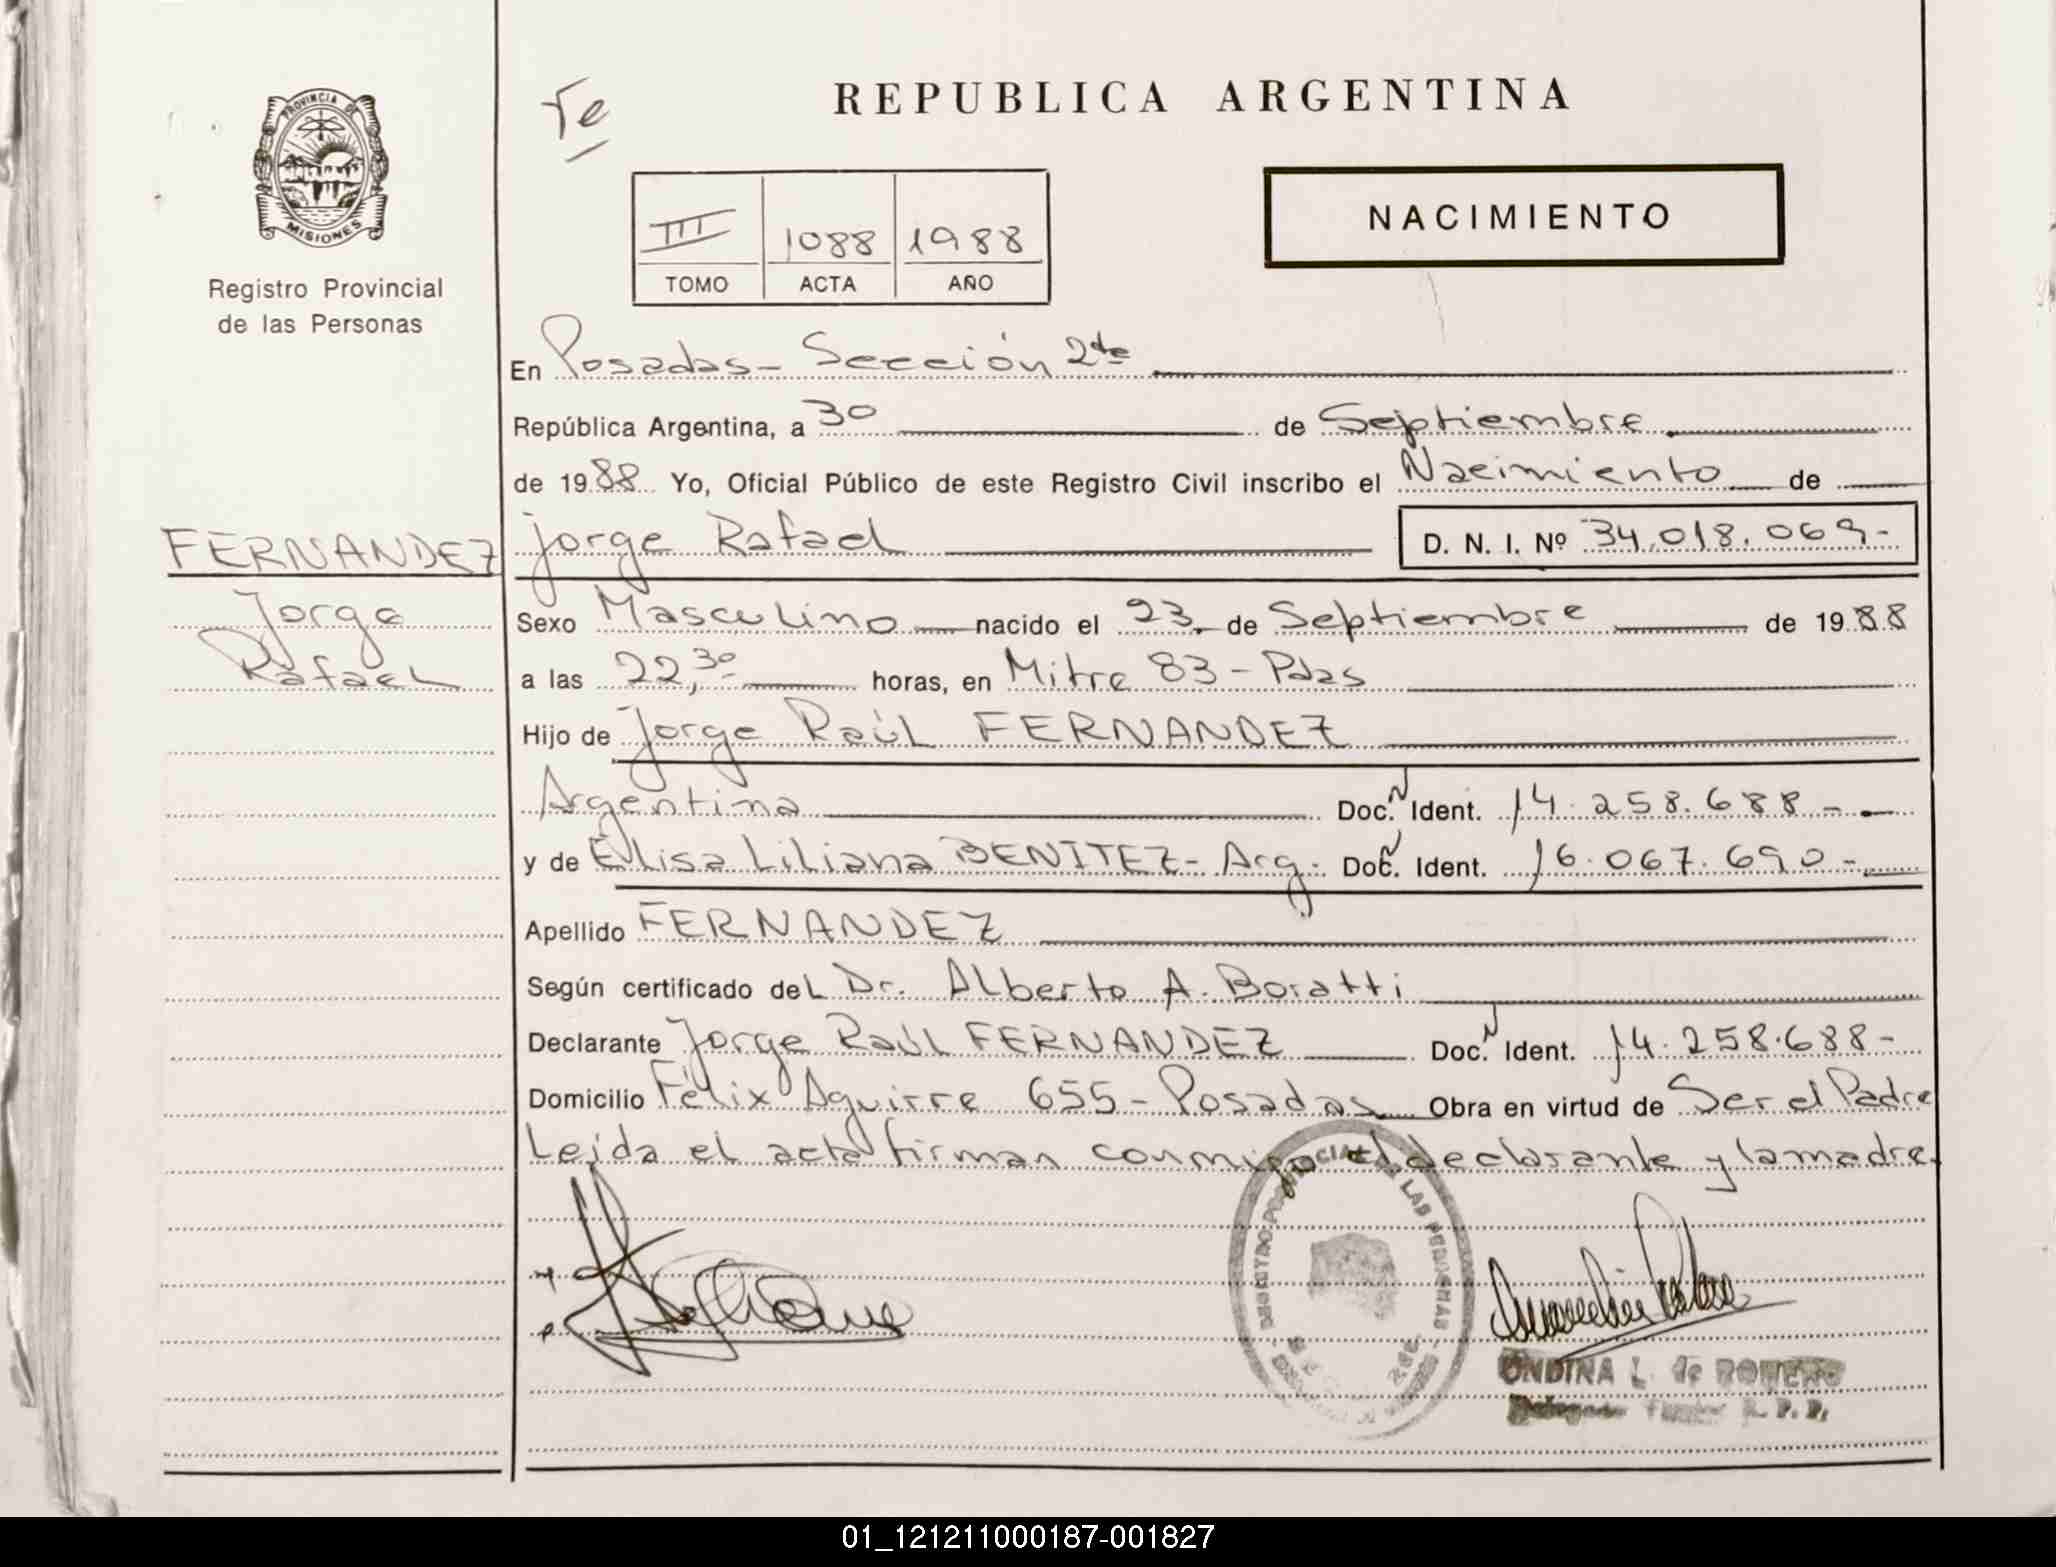 PROVINCIA DE
MISIONES
Registro Provincial
de las Personas
FERNANDEZ
Jorge
Rafael
Te
REPUBLICA ARGENTINA
III 1088 1988
TOMO ACTA AÑO
NACIMIENTO
En Posadas - Sección 2da
República Argentina, a 30 de Septiembre
de 1988 Yo, Oficial Público de este Registro Civil inscribo el Nacimiento de
Jorge Rafael D. N. I. Nº 34.018.069-
Sexo Masculino nacido el 23 de Septiembre de 1988
a las 22,30 horas, en Mitre 83 - Pdas
Hijo de Jorge Raúl FERNANDEZ
Argentina Doc. N Ident. 14.258.688-
y de Elisa Liliana BENITEZ - Arg. Doc. N Ident. 16.067.690-
Apellido FERNANDEZ
Según certificado del Dr. Alberto A. Boratti
Declarante Jorge Raúl FERNANDEZ Doc. N Ident. 14.258.688-
Domicilio Félix Aguirre 655 - Posadas Obra en virtud de Ser el Padre
Leída el acta firman conmigo el declarante y la madre.
REGISTRO PROVINCIAL DE LAS PERSONAS
ONDINA L. de ROMERO
R. P. P.
01_121211000187-001827